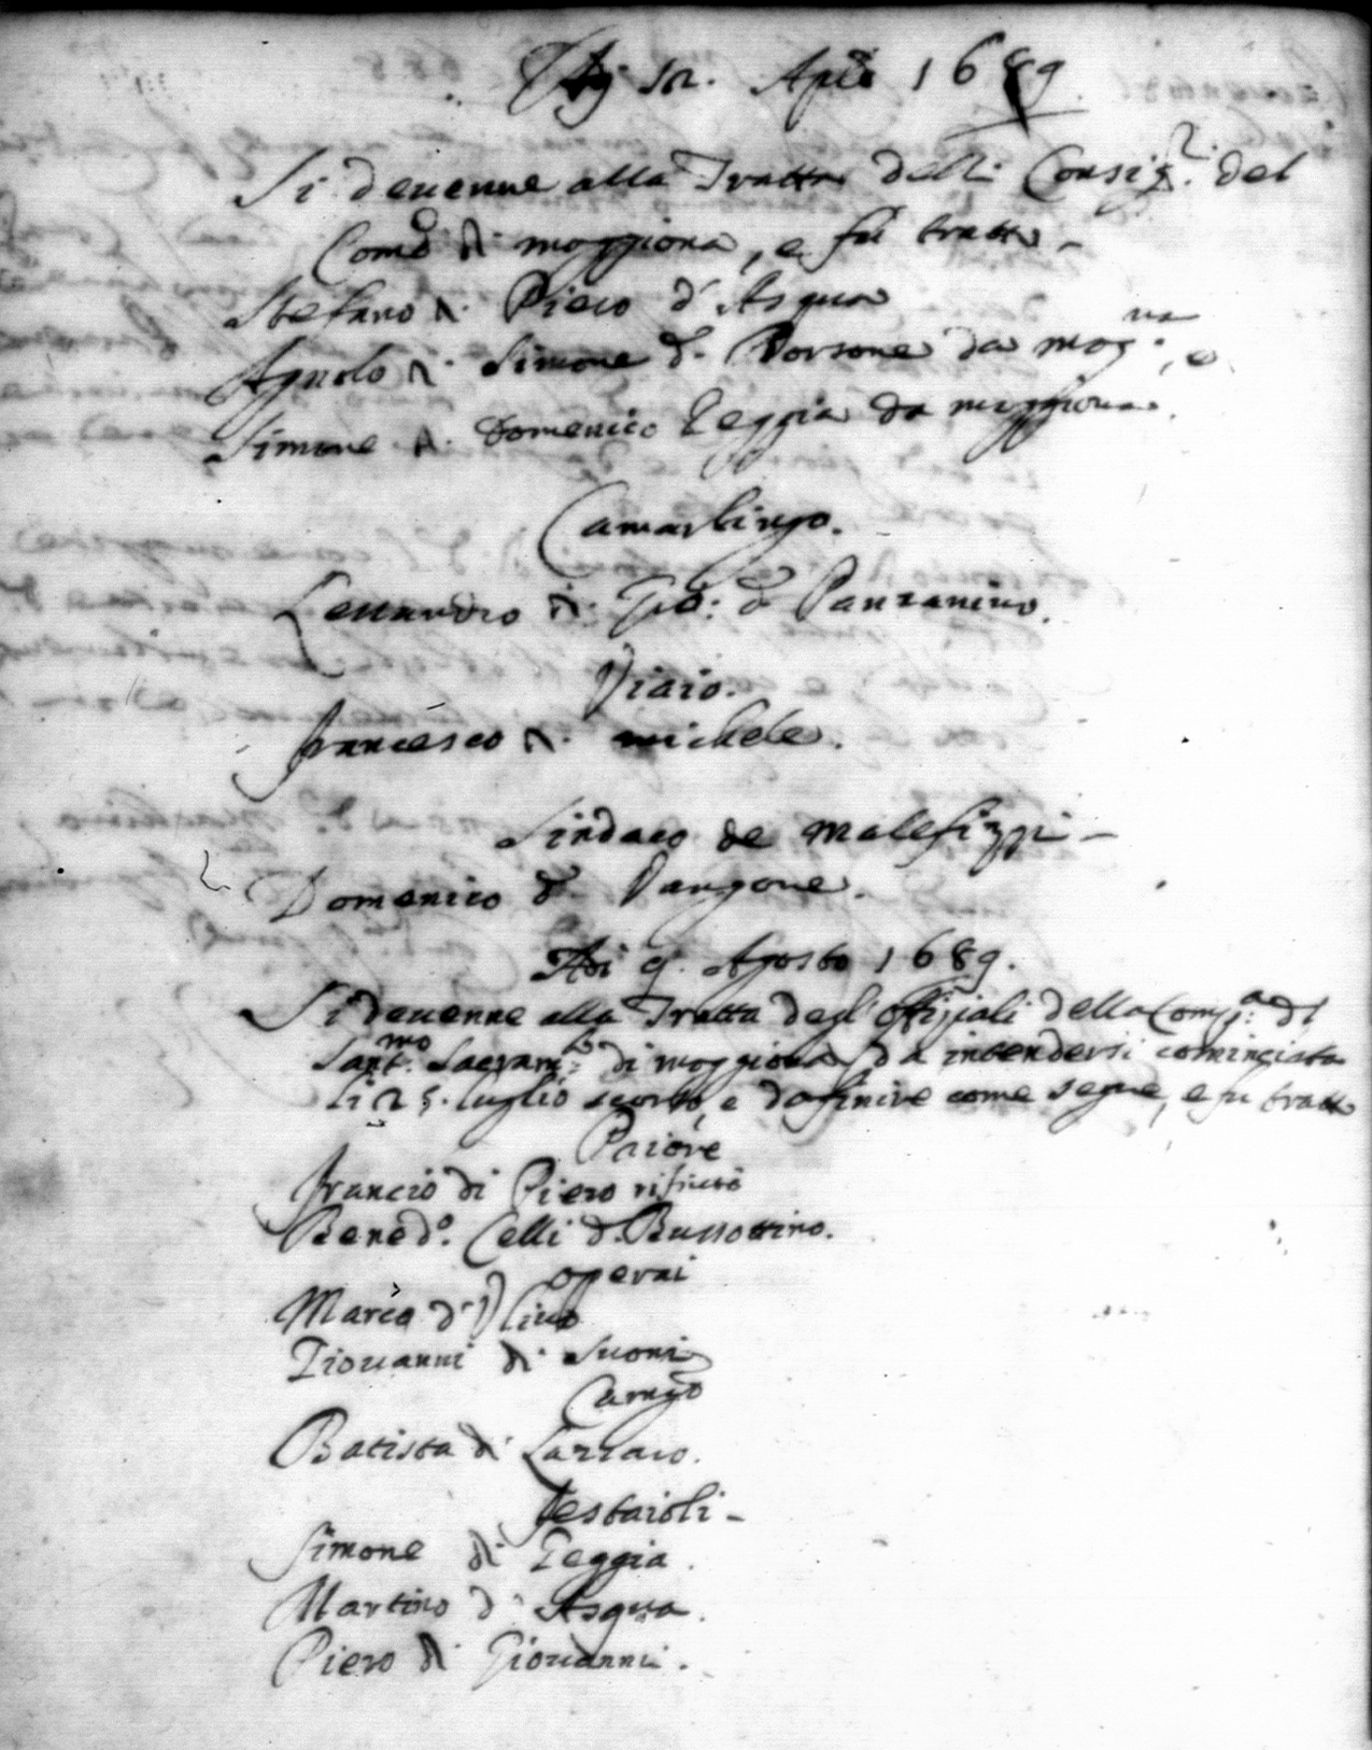 Adj 12. Aple 1689
Si devenne alla Tratta delli Consigri. del
Comᵒ di moggiona, e fu tratto
Stefano di Piero d'Asqua
Agnolo di Simone d. Borsone da mogna., e
Simone di Domenico Geggia da moggiona.
Camarlingo.
Leuandro di Gio: d Panzanino.
Viaio.
francesco di michele.
Sindaco de malefizzi
Domenico d. Vangone.
Adi 9. Agosto 1689.
Si devenne alla Tratta degl'offiziali della Compa. dl
Santmo. Sacramto. di moggiona da intendersi cominciata
li 25. luglio scorso, e da finire come segue, e fu tratto
Priore
francio di Piero rifiutò
Benedo. Celli d. Bussottino.
operai
Marco d'Ulivo
Giovanni di Suoni
Camgo
Batista di Lazzaro.
festaioli
Simone di Geggia.
Martino d'Asqua.
Piero di Giovanni.